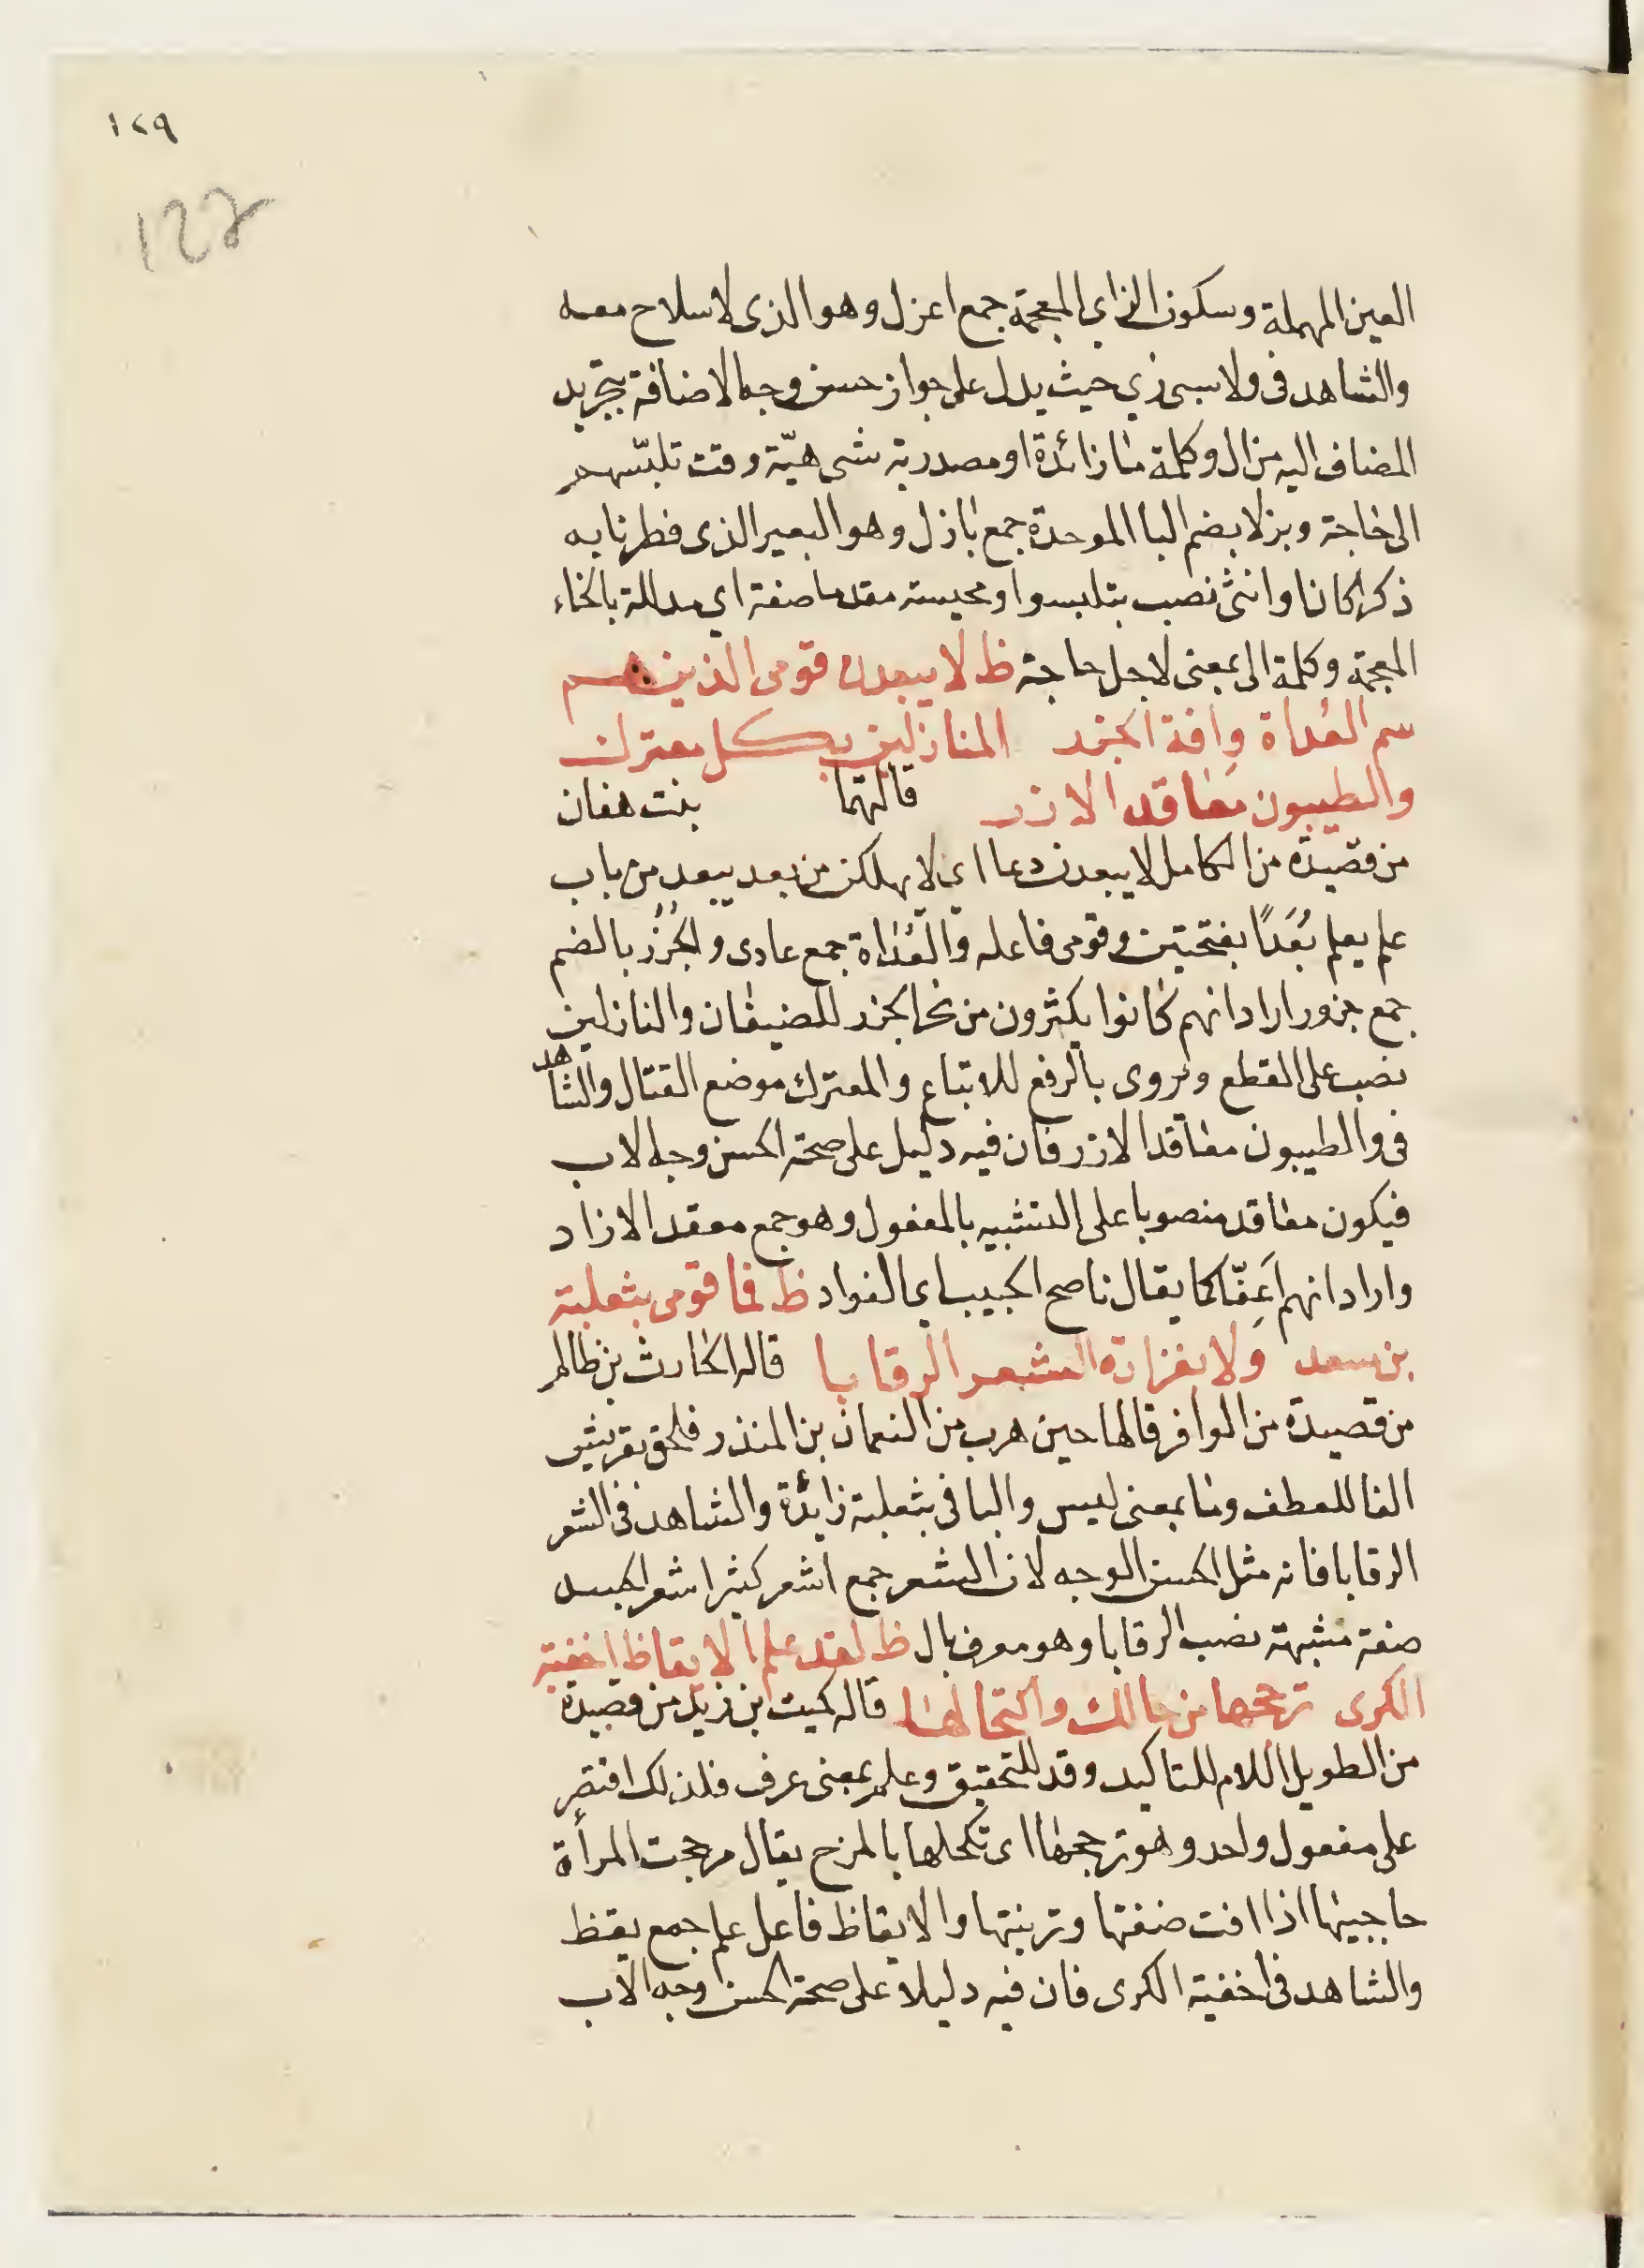 ١٢٩
122
العين المهملة وسكون الزاي المعجمة جمع اعزل وهو الذى لاسلاح معه
والشاهد فى ولا سيى زي حيث يدل على جواز حسن وجه الاضافة بتجريد
المضاف اليه من ال وكلمة ما زائدة او مصدرية شى هيّة وقت تلبّسهم
الى حاجة وبزلا بضم البا الموحدة جمع بازل وهو البعير الذى فطر نابه
ذكرا كان او انثى نصب بتلبسوا ومخيسة مقدما صفة اي مذللة بالخاء
المعجمة وكلمة الى بمعنى لاجل حاجة ظ لا يبعدن قومى الذين هم
سم العُداة وآفة الجزر المنازلين بكل معترك
والطيبون معاقد الازر قالتهما بنت هفان
من قصيدة من الكامل لا يبعدن دعا اي لا يهلكن من بعد يبعد من باب
علم يعلم بُعَدًا بفتحتين وقومى فاعله والعُداة جمع عادى والجُزُر بالضم
جمع جزور اراد انهم كانوا يكثرون من نحر الجزر للضيفان والنازلين
نصب على القطع ويروى بالرفع للاتباع والمعترك موضع القتال والشاهد
فى والطيبون معاقد الازر فان فيه دليل على صحة الحسن وجه الاب
فيكون معاقد منصوبا على التشبيه بالمفعول وهو جمع معقد الازاد
واراد انهم اَعِفّا كما يقال ناصح الجيب اى الفواد ظ فما قومى بثعلبة
بن سعد ولا بفزارة الشعر الرقابا قاله الحارث بن ظالم
من قصيدة من الوافر قالها حين هرب من النعمان بن المنذر فلحق بقريش
الفا للعطف وما بمعنى ليس والبا فى بثعلبة زائدة والشاهد فى الشعر
الرقابا فانه مثل الحسن الوجه لان الشعر جمع اشعر كثير اشعر الجسد
صفة مشبهة نصب الرقابا وهو معرف بال ظ لقد علم الايقاظ اخفية
الكرى تزججها من حالك واكتحالها قاله كميت بن زيد من قصيدة
من الطويل اللام للتاكيد وقد للتحقيق وعلم بمعنى عرف فلذلك اقتصر
على مفعول واحد وهو تزججها اى تكحلها بالمزج يقال مزججت المرأة
حاجبيها اذا افت ضفتها وتزينتها والايقاظ فاعل علم جمع يقظ
والشاهد فى اخفية الكرى فان فيه دليلا على صحة الحسن وجه الاب